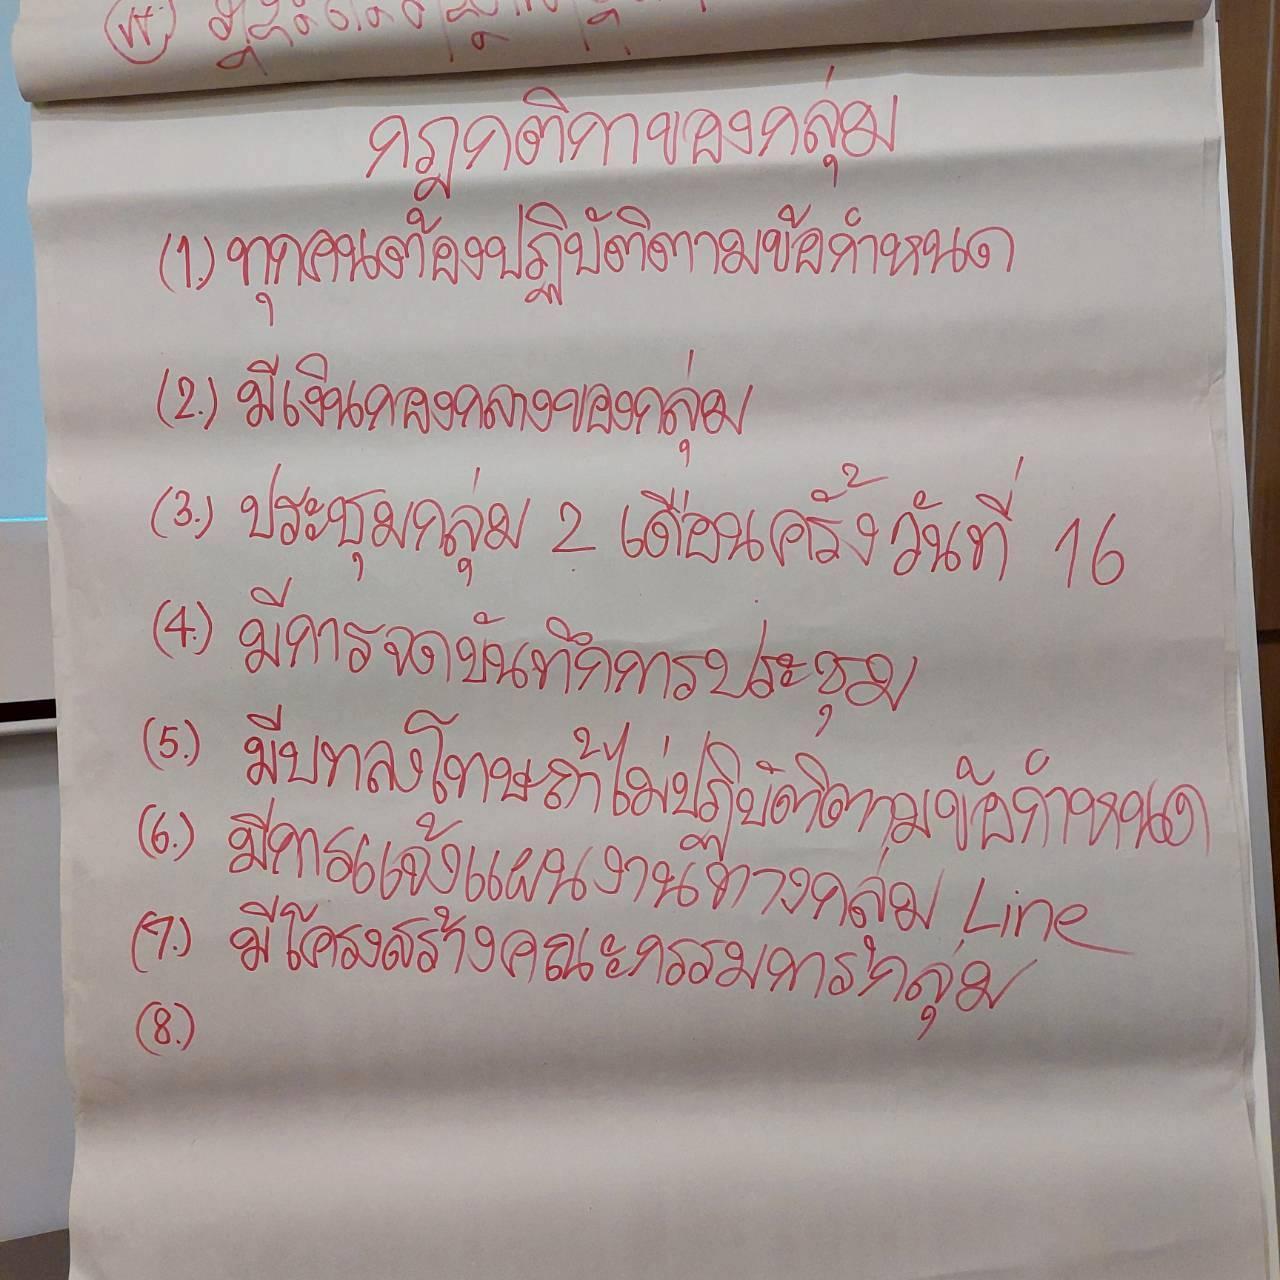 กฎกติกาของกลุ่ม
(1.) ทุกคนต้องปฏิบัติตามข้อกำหนด
(2.) มีเงินกองกลางของกลุ่ม
(3.) ประชุมกลุ่ม 2 เดือนครั้ง วันที่ 16
(4.) มีการจดบันทึกการประชุม
(5.) มีบทลงโทษถ้าไม่ปฏิบัติตามข้อกำหนด
(6.) มีการแจ้งแผนงานทางกลุ่ม Line
(7.) มีโครงสร้างคณะกรรมการกลุ่ม
(8.)